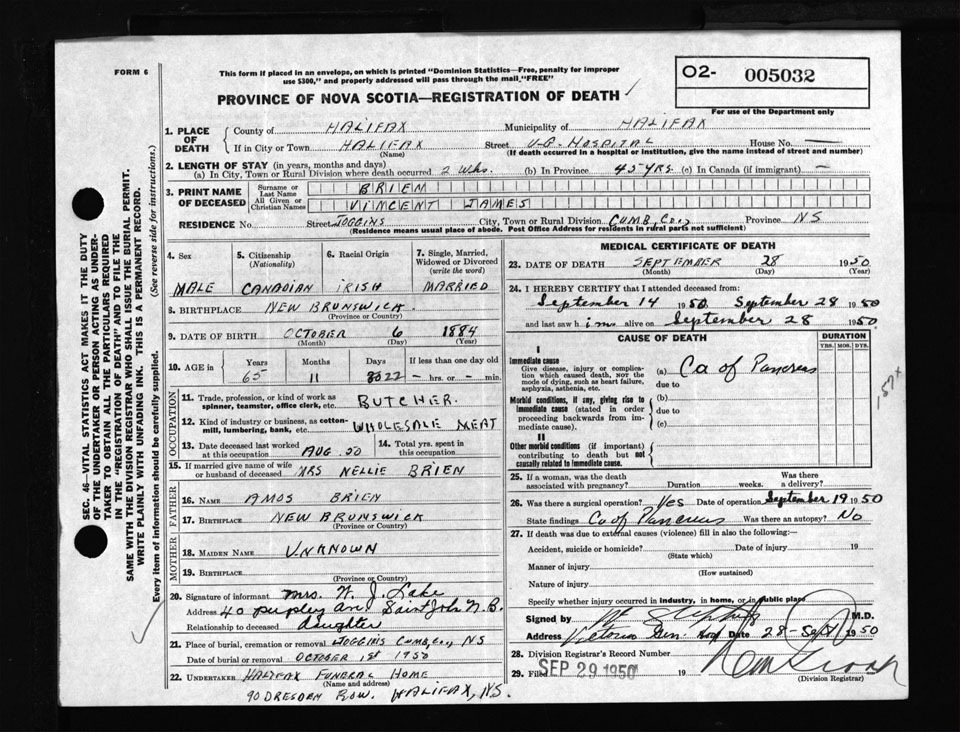 FORM 6
This form if placed in an envelope, on which is printed "Dominion Statistics—Free, penalty for improper
use $300," and properly addressed will pass through the mail "FREE"
O2- 005032
PROVINCE OF NOVA SCOTIA—REGISTRATION OF DEATH
For use of the Department only
1. PLACE OF DEATH
County of HALIFAX Municipality of HALIFAX
If in City or Town HALIFAX Street V-G-HOSPITAL House No. —
(Name) (If death occurred in a hospital or institution, give the name instead of street and number)
2. LENGTH OF STAY (in years, months and days)
(a) In City, Town or Rural Division where death occurred 2 Wks. (b) In Province 45 YRS. (c) In Canada (if immigrant) —
3. PRINT NAME OF DECEASED
Surname or Last Name BRIEN
All Given or Christian Names VINCENT JAMES
RESIDENCE No. Street JOGGINS City, Town or Rural Division CUMB, CO., Province NS
(Residence means usual place of abode. Post Office Address for residents in rural parts not sufficient)
SEC. 46—VITAL STATISTICS ACT MAKES IT THE DUTY
OF THE UNDERTAKER OR PERSON ACTING AS UNDER-
TAKER TO OBTAIN ALL THE PARTICULARS REQUIRED
IN THE "REGISTRATION OF DEATH" AND TO FILE THE
SAME WITH THE DIVISION REGISTRAR WHO SHALL ISSUE THE BURIAL PERMIT.
WRITE PLAINLY WITH UNFADING INK. THIS IS A PERMANENT RECORD.
Every item of information should be carefully supplied. (See reverse side for instructions.)
4. Sex 5. Citizenship (Nationality) 6. Racial Origin 7. Single, Married, Widowed or Divorced (write the word)
MALE CANADIAN IRISH MARRIED
8. BIRTHPLACE NEW BRUNSWICK.
(Province or Country)
9. DATE OF BIRTH OCTOBER 6 1884
(Month) (Day) (Year)
10. AGE in Years Months Days If less than one day old
65 11 22 — hrs. or — min.
OCCUPATION
11. Trade, profession, or kind of work as
spinner, teamster, office clerk, etc. BUTCHER.
12. Kind of industry or business, as cotton-
mill, lumbering, bank, etc. WHOLESALE MEAT
13. Date deceased last worked at this occupation AUG. 50 14. Total yrs. spent in this occupation
15. If married give name of wife
or husband of deceased MRS NELLIE BRIEN
FATHER
16. NAME AMOS BRIEN
17. BIRTHPLACE NEW BRUNSWICK
(Province or Country)
MOTHER
18. MAIDEN NAME UNKNOWN
19. BIRTHPLACE
(Province or Country)
20. Signature of informant Mrs. W. J. Lake
Address 40 Saint John N.B.
Relationship to deceased daughter
21. Place of burial, cremation or removal JOGGINS CUMB, CO., NS
Date of burial or removal OCTOBER 1st 1950
22. UNDERTAKER HALIFAX FUNERAL HOME
(Name and address)
90 DRESDEN ROW. HALIFAX, NS.
MEDICAL CERTIFICATE OF DEATH
23. DATE OF DEATH SEPTEMBER 28 1950
(Month) (Day) (Year)
24. I HEREBY CERTIFY that I attended deceased from:
September 14 1950 September 28 1950
and last saw him alive on September 28 1950
CAUSE OF DEATH DURATION
YRS. MOS. DYS.
I
Immediate cause
Give disease, injury or complica-
tion which caused death, NOT the
mode of dying, such as heart failure,
asphyxia, asthenia, etc.
(a) Ca of Pancreas
due to
Morbid conditions, if any, giving rise to
immediate cause (stated in order
proceeding backwards from im-
mediate cause).
(b)
due to
(c)
157x
II
Other morbid conditions (if important)
contributing to death but not
causally related to immediate cause.
25. If a woman, was the death
associated with pregnancy? Duration weeks. Was there a delivery?
26. Was there a surgical operation? Yes Date of operation September 19 1950
State findings Ca of Pancreas Was there an autopsy? No
27. If death was due to external causes (violence) fill in also the following:—
Accident, suicide or homicide? Date of injury 19
(State which)
Manner of injury
(How sustained)
Nature of injury
Specify whether injury occurred in industry, in home, or in public place
Signed by M.D.
Address Victoria Gen. Hosp Date 28-Sept 1950
28. Division Registrar's Record Number
29. Filed SEP 29 1950 19
(Division Registrar)